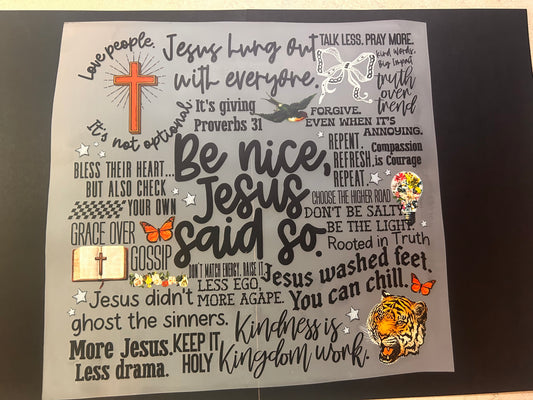 Love people.
It's not optional.
Jesus hung out
with everyone.
TALK LESS. PRAY MORE.
Kind words,
Big Impact
truth
over
trend
It's giving
Proverbs 31
FORGIVE.
EVEN WHEN IT'S
ANNOYING.
BLESS THEIR HEART...
BUT ALSO CHECK
YOUR OWN
Be nice,
Jesus
said so.
REPENT.
REFRESH.
REPEAT.
Compassion
is Courage
CHOOSE THE HIGHER ROAD
DON'T BE SALTY
BE THE LIGHT.
Rooted in Truth
GRACE OVER
GOSSIP
DON'T MATCH ENERGY. RAISE IT.
LESS EGO,
MORE AGAPE.
Jesus washed feet.
You can chill.
Jesus didn't
ghost the sinners.
More Jesus.
Less drama.
KEEP IT
HOLY
Kindness is
Kingdom work.